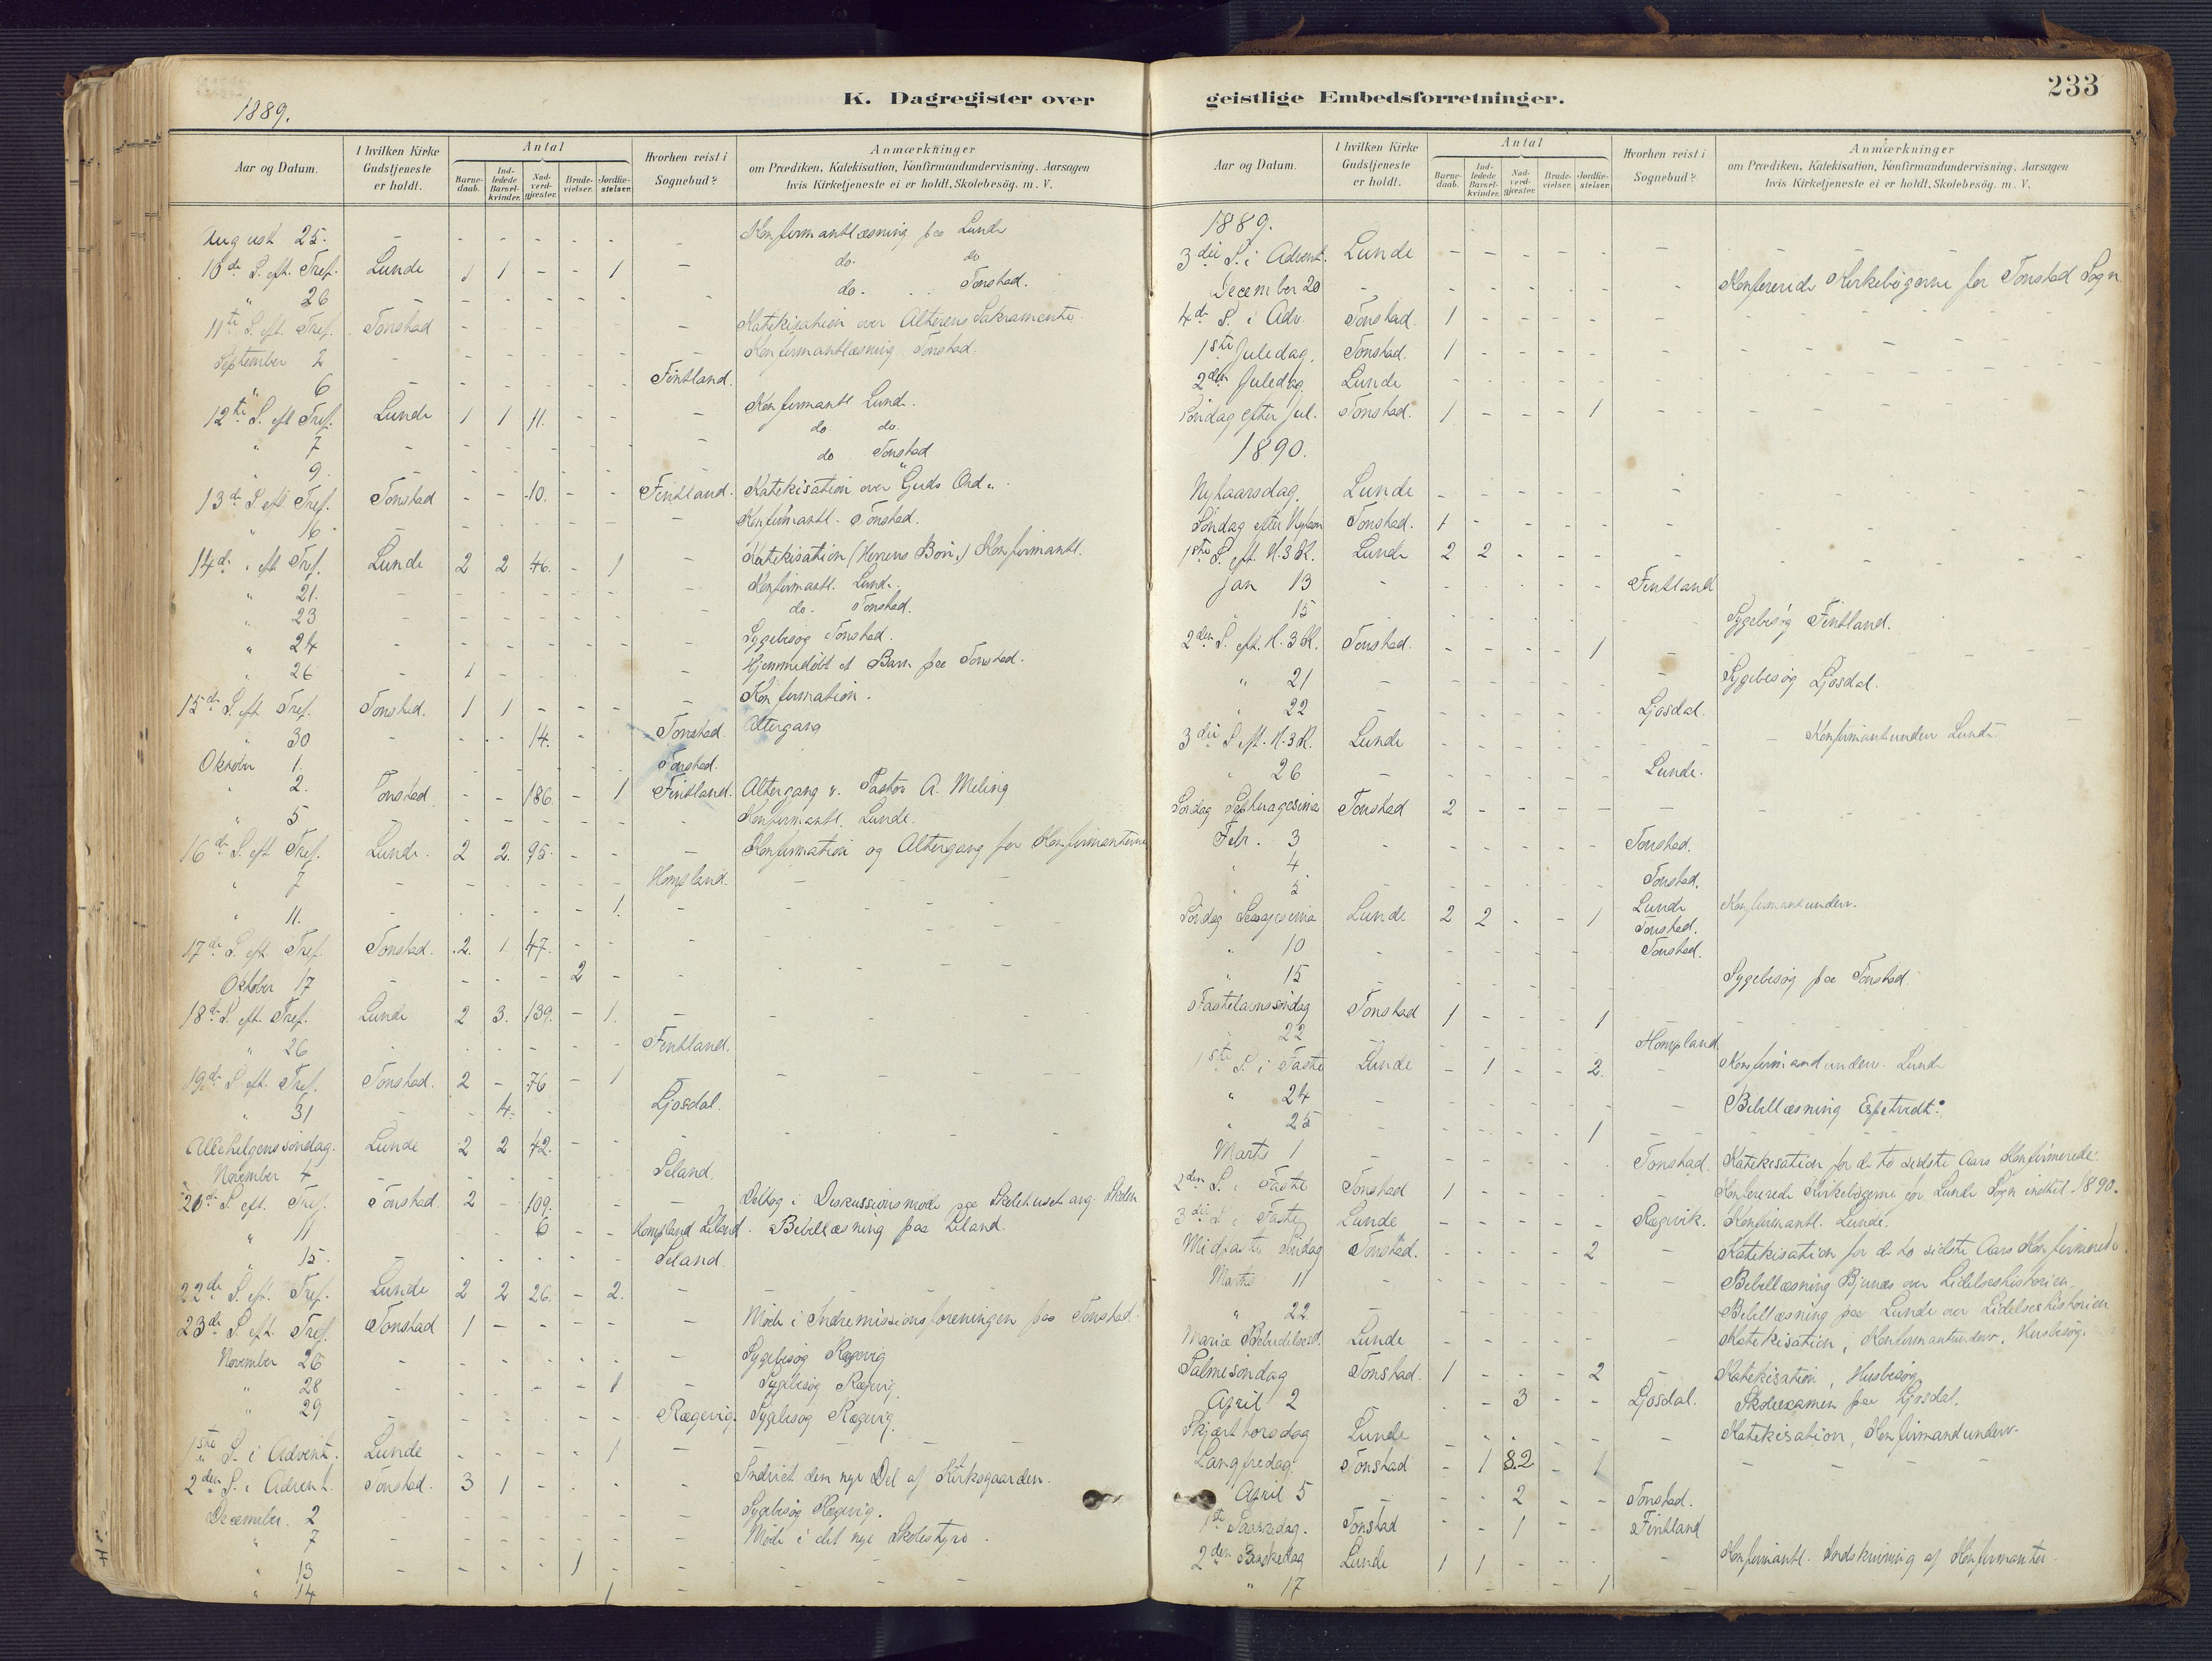 1889.
K. Dagregister over
Aar og Datum.
I hvilken Kirke Gudstjeneste er holdt.
Antal
Barne-daab.
Ind-ledede Barsel-kvinder.
Nad-verd-gjæster.
Brude-vielser.
Jordfæ-stelser.
Hvorhen reist i Sognebud?
Anmærkninger
om Prædiken, Katekisation, Konfirmandundervisning, Aarsagen
hvis Kirketjeneste ei er holdt, Skolebesög. m. V.
August 25. - - - - - - - Konfirmantlæsning paa Lunde
10de S. eft. Tref. Lunde 1 1 - - 1 - do. do
" 26 - - - - - - - do. Tonstad.
11te S. eft. Tref. Tonstad - - - - - - Katekisation over Alterens Sakramente.
September 2 - - - - - - - Konfirmantlæsning Tonstad.
" 6 - - - - - - Fintland.
12te S. eft Tref. Lunde 1 1 11. - - - Konfirmantl Lunde.
" 7 - - - - - - - do do.
" 9. - - - - - - - do Tonstad
13de S. eft. Tref. Tonstad - - 10. - - Fintland. Katekisation over "Guds Ord".
" 16 - - - - - - - Konfirmantl. Tonstad.
14de " eft Tref. Lunde 2 2 46. - 1 - Katekisation (Herrens Bøn.) Konfirmantl.
" 21. - - - - - - - Konfirmantl. Lunde.
" 23 - - - - - - - do. Tonstad.
" 24 - - - - - - - Sygebesøg Tonstad.
" 26 - 1 - - - - - Hjemmedøbt et Barn paa Tonstad.
15de S. eft Tref. Tonstad. 1 1 - - - - Konfirmation.
" 30 - - - 14. - - Tonstad. Altergang
Oktober 1. - - - - - - Tonstad.
" 2. Tonstad - - 186. - 1 Fintland. Altergang v. Pastor A. Meling
" 5 - - - - - - - Konfirmantl. Lunde.
16de S. eft Tref. Lunde. 2 2. 95. - - - Konfirmation og Altergang for Konfirmanterne
" 7 - - - - - - Hompland. - - -
" 11. - - - - - 1. -
17de S. eft Tref. Tonstad. 2. 1 47. - - -
Oktober 17 - - - - 2 - -
18de S. eft. Tref. Lunde 2 3. 139. - 1. -
" 26 - - - - - - Fintland.
19de S. eft. Tref. Tonstad. 2 - 76 - 1 -
" 31 - - 4. - Ljosdal.
Allehelgenssöndag. Lunde 2 2 42. - - -
November 4 - - - - - - Seland.
20de S. eft. Tref. Tonstad. 2 - 109. - - - Deltog i Diskussionsmøde paa Skolehuset ang. Skolen
" 11 - - 6 - - Hompland Seland. Bibellæsning paa Seland.
" 15. - - - - - - Seland
22de S. eft. Tref. Lunde 2 2 26. - 2. -
23de S. eft. Tref. Tonstad 1 - - - - - Møde i Indremissionsforeningen paa Tonstad.
November 26 - - - - - - - Sygebesøg Rægevig
" 28 - - - - - 1 - Sygebesøg Rægevig.
" 29 - - - - - - Rægevig. Sygebesøg Rægevig.
1ste S. i Advent. Lunde - - - - 1 -
2den S. i Advent. Tonstad. 3 1 - - - - Indviet den nye Del af Kirkegaarden.
December. 2 - - - - - - - Sygebesøg Rægevig.
" 7 - - - - - - - Møde i det nye Skolestyre.
" 13 - - - - 1 - -
" 14 - - - - - 1 -
233
geistlige Embedsforretninger.
Aar og Datum.
I hvilken Kirke Gudstjeneste er holdt.
Antal
Barne-daab.
Ind-ledede Barsel-kvinder.
Nad-verd-gjæster.
Brude-vielser.
Jordfæ-stelser.
Hvorhen reist i Sognebud?
Anmærkninger
om Prædiken, Katekisation, Konfirmandundervisning, Aarsagen
hvis Kirketjeneste ei er holdt, Skolebesög. m. V.
1889.
3die S. i Advent. Lunde - - - - - -
December 20 - - - - - - - Konfererede Kirkebøgerne for Tonstad Sogn
4de S. i Adv. Tonstad. 1 - - - - -
1ste Juledag. Tonstad. 1 - - - - -
2den Juledag Lunde - - - - - -
Söndag efter Jul. Tonstad. 1 - - - 1 -
1890.
Nytaarsdag. Lunde - - - - - -
Söndag efter Nytaar Tonstad. 1 - - - - -
1ste S. eft. H.3 K. Lunde 2 2 - - - -
Jan 13 - - - - - - Fintland
" 15 - - - - - - - Sygebesøg Fintland.
2den S. eft. H. 3 K. Tonstad. - - - - 1 -
" 21 - - - - - - - Sygebesøg Ljosdal.
" 22 - - - - - - Ljosdal.
3die S eft. H.3 K. Lunde - - - - - - Konfirmantunderv Lunde
" 26 - - - - - - Lunde.
Söndag Septuagesima Tonstad 2 - - - - -
Febr. 3 - - - - - - Tonstad.
" 4 Tonstad.
" 5 - - - - - - Lunde Konfirmantunderv.
Söndag Sexagesima Lunde 2 2 - - 1 Tonstad.
" 10 - - - - - - Tonstad.
" 15 - - - - - - - Sygebesøg paa Tonstad.
Fastelavnssöndag Tonstad 1 - - - 1 -
" 22 - - - - - - Hompland
1ste S. i Faste Lunde - 1 - - 2. - Konfirmandunderv. Lunde
" 24 - - - - - - - Bibellæsning Espetvedt.
" 25 - - - - - 1 -
Marts 1 - - - - - - Tonstad. Katekisation for de to sidste Aars Konfirmerede.
2den S. i Faste Tonstad 1 - - - - - Konfererede Kirkebøgerne for Lunde Sogn indtil 1890.
3die S i Faste Lunde - - - - - Rægevik. Konfirmantl. Lunde.
Midfaste Søndag Tonstad. - - - - 2 - Katekisation for de to sidste Aars Konfirmerede.
Marts 11 - - - - - - - Bibellæsning Bjunes over Lidelseshistorien.
" 22 - - - - - - - Bibellæsning paa Lunde over Lidelseshistorien
Mariæ Bebudelsesd. Lunde - - - - - - Katekisation, Konfirmantunderv. Husbesøg.
Palmesöndag Tonstad. 1 - - - 2 - Katekisation, Husbesøg
April 2 - - 3 - - Ljosdal. Skoleexamen paa Ljosdal.
Skjærthorsdag Lunde - - - - - - Katekisation, Konfirmandunderv.
Langfredag. Tonstad - 1 82. - 1 -
April 5 - - - 2 - - Tonstad.
1ste Paaskedag. Tonstad - - 1 - - Fintland
2den Paaskedag Lunde 1 1 - - - - Konfirmantl. Indskrivning af Konfirmanter.
" 17 - - - - - 1 -